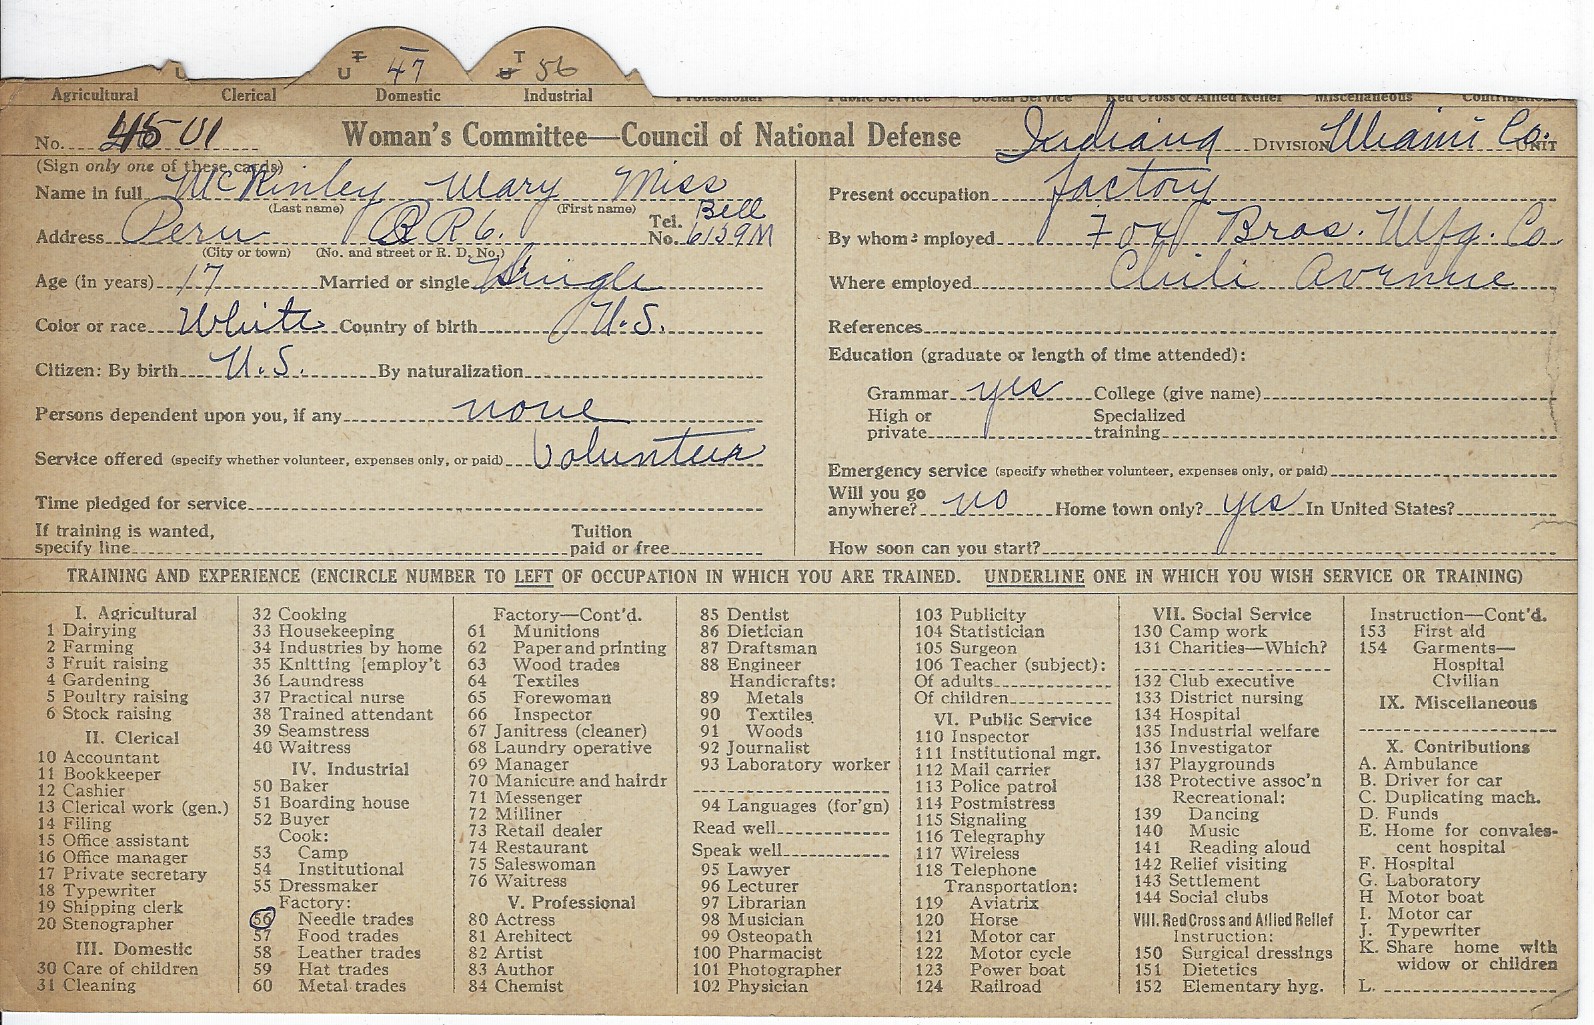 T U 47 T U 56
Agricultural Clerical Domestic Industrial Professional Public Service Social Service Red Cross & Allied Relief Miscellaneous
No. 45 U1 Woman's Committee—Council of National Defense Indiana DIVISION Miami Co. UNIT
(Sign only one of these cards)
Name in full McKinley Mary Miss
(Last name) (First name)
Address Peru R R 6. Tel. No. Bell 6159M
(City or town) (No. and street or R. D. No.)
Age (in years) 17 Married or single Single
Color or race White Country of birth U.S.
Citizen: By birth U.S. By naturalization
Persons dependent upon you, if any none
Service offered (specify whether volunteer, expenses only, or paid) Volunteer
Time pledged for service
If training is wanted, Tuition
specify line paid or free
Present occupation factory
By whom employed Fox Bros. Mfg. Co.
Where employed Chili Avenue
References
Education (graduate or length of time attended):
Grammar yes College (give name)
High or Specialized
private training
Emergency service (specify whether volunteer, expenses only, or paid)
Will you go
anywhere? no Home town only? yes In United States?
How soon can you start?
TRAINING AND EXPERIENCE (ENCIRCLE NUMBER TO LEFT OF OCCUPATION IN WHICH YOU ARE TRAINED. UNDERLINE ONE IN WHICH YOU WISH SERVICE OR TRAINING)
I. Agricultural
1 Dairying
2 Farming
3 Fruit raising
4 Gardening
5 Poultry raising
6 Stock raising
II. Clerical
10 Accountant
11 Bookkeeper
12 Cashier
13 Clerical work (gen.)
14 Filing
15 Office assistant
16 Office manager
17 Private secretary
18 Typewriter
19 Shipping clerk
20 Stenographer
III. Domestic
30 Care of children
31 Cleaning
32 Cooking
33 Housekeeping
34 Industries by home
35 Knitting [employ't
36 Laundress
37 Practical nurse
38 Trained attendant
39 Seamstress
40 Waitress
IV. Industrial
50 Baker
51 Boarding house
52 Buyer
Cook:
53 Camp
54 Institutional
55 Dressmaker
Factory:
56 Needle trades
57 Food trades
58 Leather trades
59 Hat trades
60 Metal trades
Factory—Cont'd.
61 Munitions
62 Paper and printing
63 Wood trades
64 Textiles
65 Forewoman
66 Inspector
67 Janitress (cleaner)
68 Laundry operative
69 Manager
70 Manicure and hairdr
71 Messenger
72 Milliner
73 Retail dealer
74 Restaurant
75 Saleswoman
76 Waitress
V. Professional
80 Actress
81 Architect
82 Artist
83 Author
84 Chemist
85 Dentist
86 Dietician
87 Draftsman
88 Engineer
Handicrafts:
89 Metals
90 Textiles
91 Woods
92 Journalist
93 Laboratory worker
94 Languages (for'gn)
Read well
Speak well
95 Lawyer
96 Lecturer
97 Librarian
98 Musician
99 Osteopath
100 Pharmacist
101 Photographer
102 Physician
103 Publicity
104 Statistician
105 Surgeon
106 Teacher (subject):
Of adults
Of children
VI. Public Service
110 Inspector
111 Institutional mgr.
112 Mail carrier
113 Police patrol
114 Postmistress
115 Signaling
116 Telegraphy
117 Wireless
118 Telephone
Transportation:
119 Aviatrix
120 Horse
121 Motor car
122 Motor cycle
123 Power boat
124 Railroad
VII. Social Service
130 Camp work
131 Charities—Which?
132 Club executive
133 District nursing
134 Hospital
135 Industrial welfare
136 Investigator
137 Playgrounds
138 Protective assoc'n
Recreational:
139 Dancing
140 Music
141 Reading aloud
142 Relief visiting
143 Settlement
144 Social clubs
VIII. Red Cross and Allied Relief
Instruction:
150 Surgical dressings
151 Dietetics
152 Elementary hyg.
Instruction—Cont'd.
153 First aid
154 Garments—
Hospital
Civilian
IX. Miscellaneous
X. Contributions
A. Ambulance
B. Driver for car
C. Duplicating mach.
D. Funds
E. Home for convales-
cent hospital
F. Hospital
G. Laboratory
H Motor boat
I. Motor car
J. Typewriter
K. Share home with
widow or children
L.